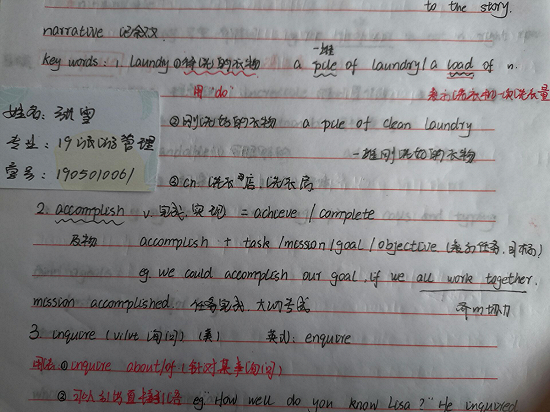 to the story.
narrative 记叙文
一堆
key words: 1, laundry ①待洗的衣物 a pile of laundry / a load of n.
用"do" 表示洗衣机一次洗衣量
姓名: 
②刚洗好的衣物 a pile of clean laundry
专业: 19 管理
一堆刚洗好的衣物
学号: 1905010061
③cn 洗衣店、洗衣房
2. accomplish v. 完成, 实现 = achieve / complete
及物 accomplish + task / mission / goal / objective (表示任务、目标)
eg. we could accomplish our goal, if we all work together.
mission accomplished 任务完成、大功告成 齐心协力
3. inquire (vi/vt 询问) (美) 英式: enquire
用法: ① inquire about/of (针对某事询问)
② 可以引出直接引语 eg "How well do you know Lisa?" He inquired